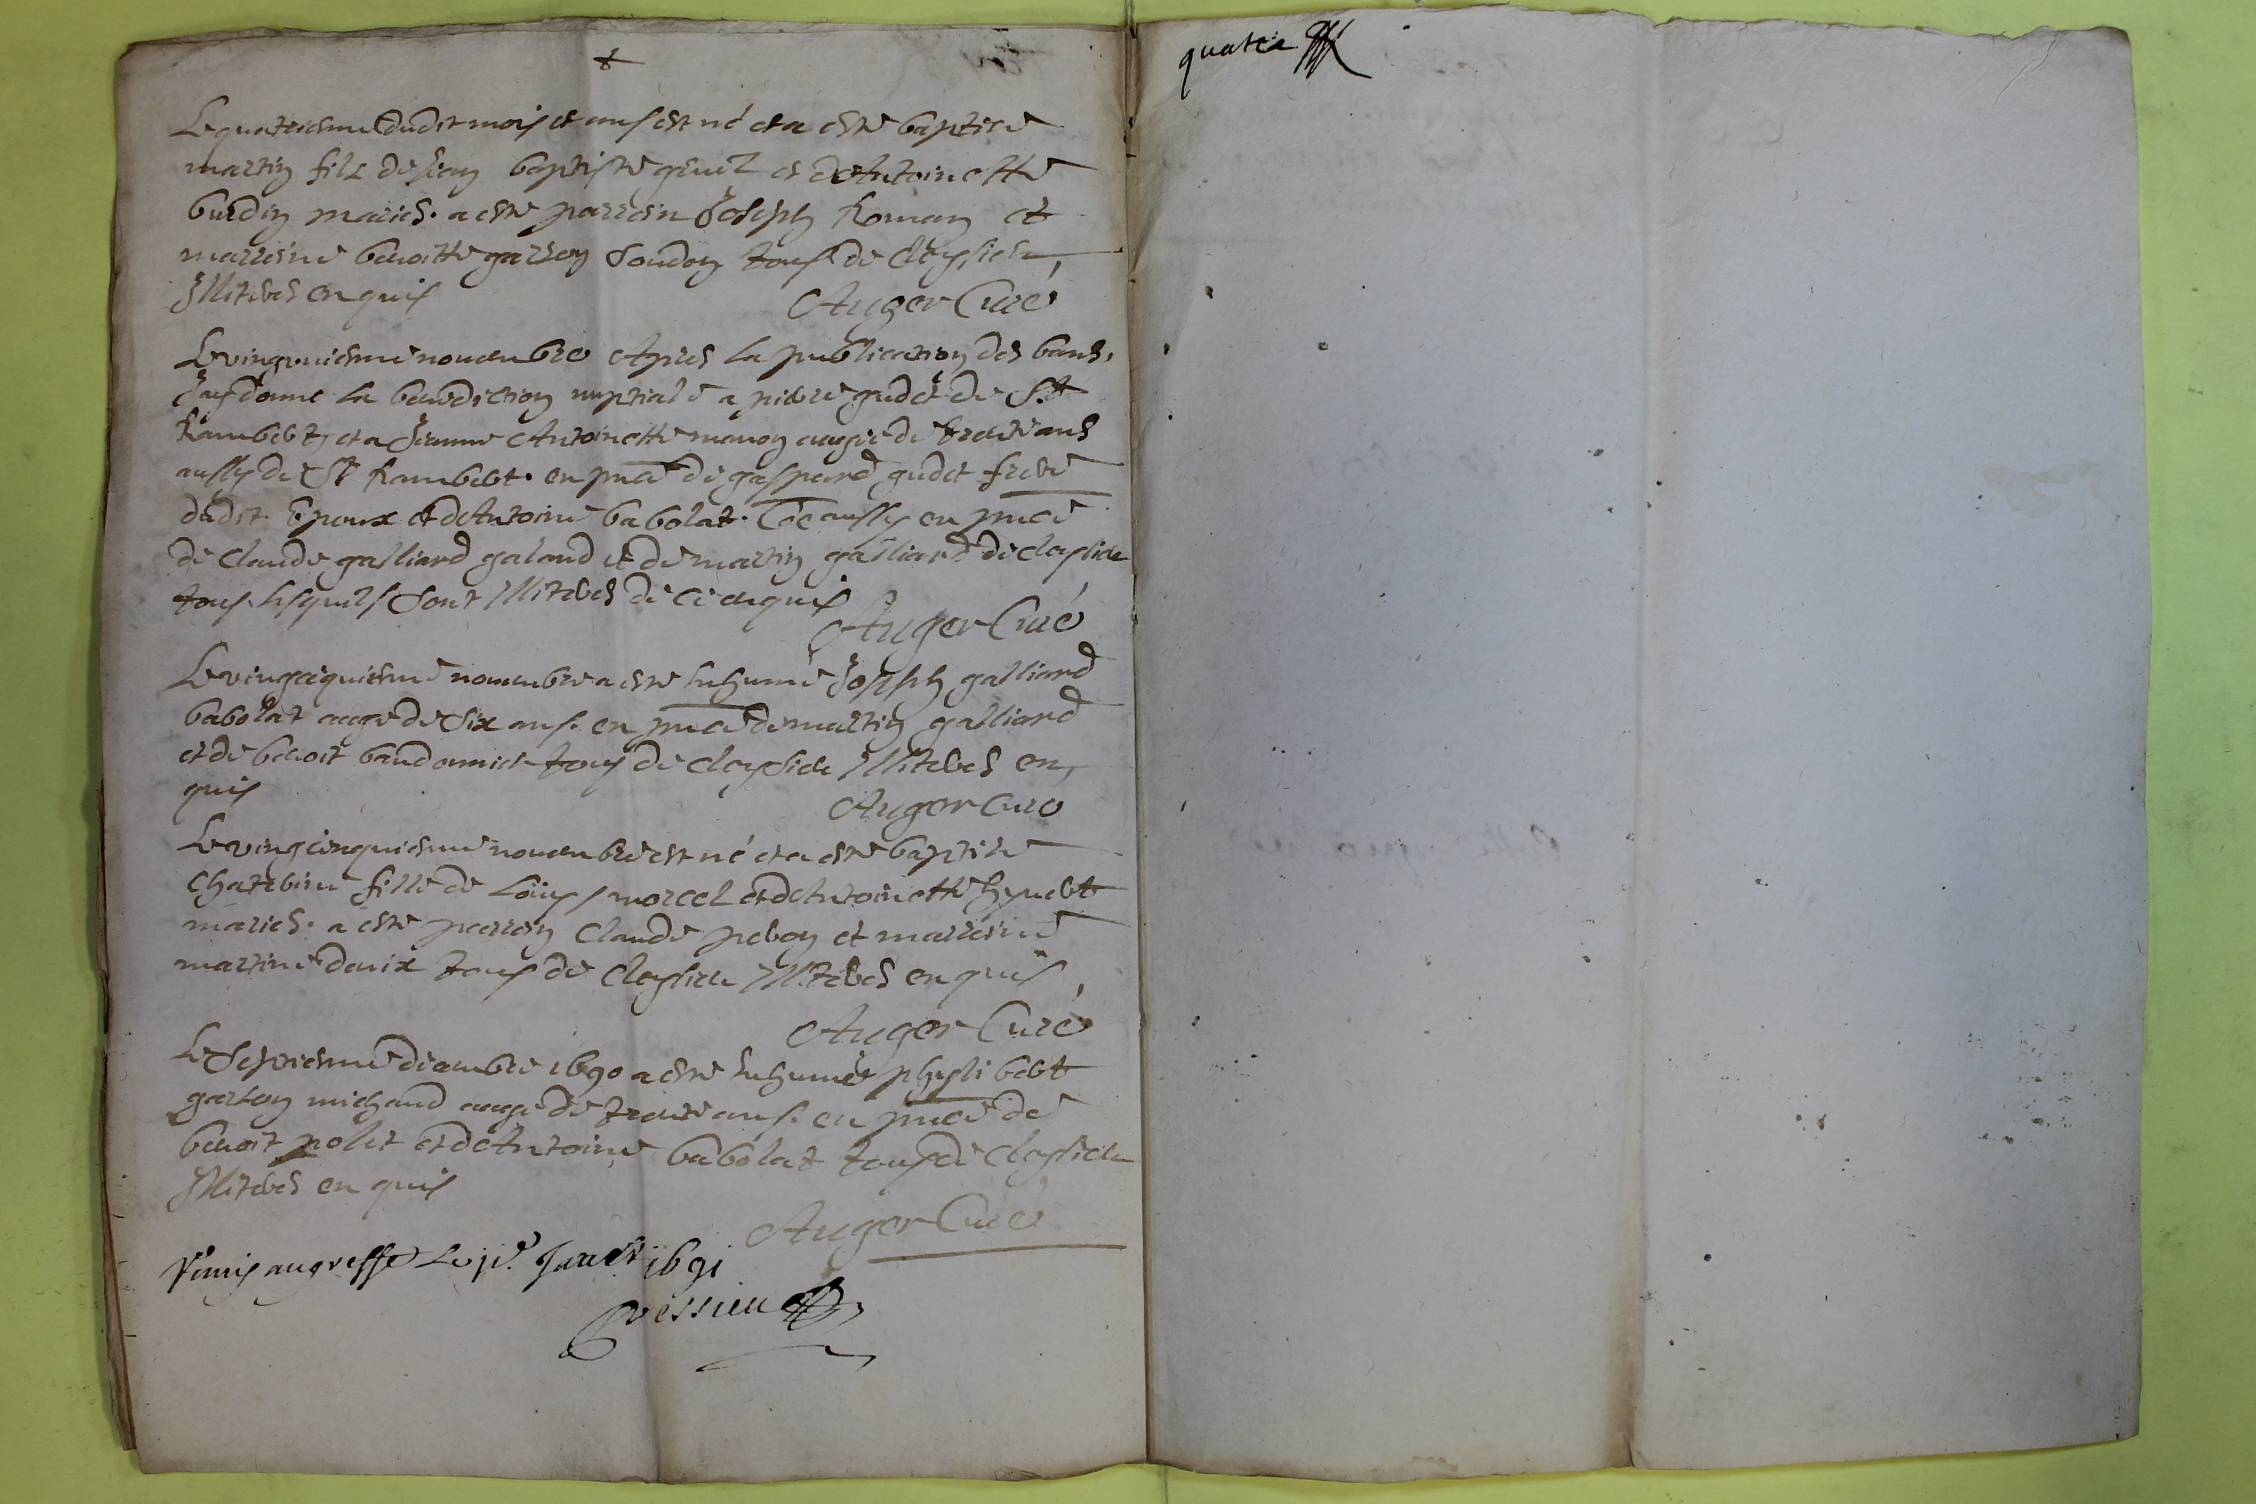 Le quatriesme dudit mois et ans est né et a esté baptisé
martin fils de Jean baptiste et de Antoinette
burdin mariés. a esté parrein Joseph Roman et
marreine benoitte garson tous de Cleysieu
Illiterés enquis
Auger Curé
Le novembre Apres la publication des bans,
J'ay donné la benediction nuptiale a pierre gudet de St
Rambert, et a Jeanne Antoinette aagée de trente ans
aussy de St Rambert. en pnce de gaspard gudet frere
dudit Epoux et de Antoine babolat. aussy en pnce
de Claude galliard galand et de martin galliard de Cleysieu
tous lesquels sont Illiterés de ce enquis
Auger Curé
Le novembre a esté Inhumé Joseph galliard
babolat aagé de six ans. en pnce de martin galliard
et de benoit tous de Cleysieu Illiterés en
quis
Auger Curé
Le vingcinquiesme novembre est né et a esté baptisée
Catherine fille de Loüys morcel et de Antoinette
mariés. a esté parrein Claude et marreine
martine tous de Cleysieu Illiterés enquis,
Auger Curé
Le Septiesme decembre 1690 a esté Inhumé phylibert
garson michaud aagé de trente ans. en pnce de
benoit polet et de Antoine babolat tous de Cleysieu
Illiterés enquis
Auger Curé
Remis au greffe Le 1691
quatre